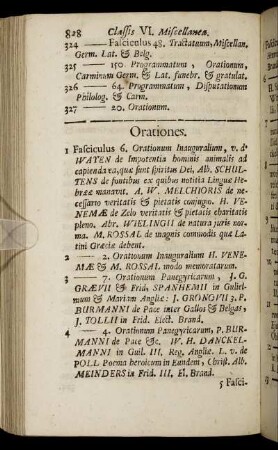 828 Classis VI. Miscellanea.
324 —— Fasciculus 48. Tractatuum, Miscellan.
Germ. Lat. & Belg.
325 —— 150 Programmatum, Orationum,
Carminum Germ. & Lat. funebr. & gratulat.
326 —— 64. Programmatum, Disputationum
Philolog. & Carm.
327 —— 20. Orationum.
Orationes.
1 Fasciculus 6. Orationum Inauguralium, v. d'
WAYEN de Impotentia hominis animalis ad
capienda ea, quæ sunt spiritus Dei. Alb. SCHUL-
TENS de fontibus ex quibus notitia Linguæ He-
brææ manavit. A. W. MELCHIORIS de ne-
cessario veritatis & pietatis conjugio. H. VE-
NEMÆ de Zelo veritatis & pietatis charitatis
pleno. Abr. WIELINGII de natura juris nor-
ma. M. ROSSAL de magnis commodis quæ La-
tini Græciæ debent.
2 —— 2. Orationum Inauguralium H. VENE-
MÆ & M. ROSSAL modo memoratarum.
3 —— 7. Orationum Panegyricarum, J. G.
GRÆVII & Frid. SPANHEMII in Guliel-
mum & Mariam Angliæ: J. GRONOVII 3. P.
BURMANNI de Pace inter Gallos & Belgas,
J. TOLLII in Frid. Elect. Brand.
4 —— 4. Orationum Panegyricarum, P. BUR-
MANNI de Pace &c. W. H. DANCKEL-
MANNI in Guil. III. Reg. Angliæ. L. v. de
POLL Poema heroicum in Eundem, Christ. Alb.
MEINDERS in Frid. III. El. Brand.
5 Fasci-